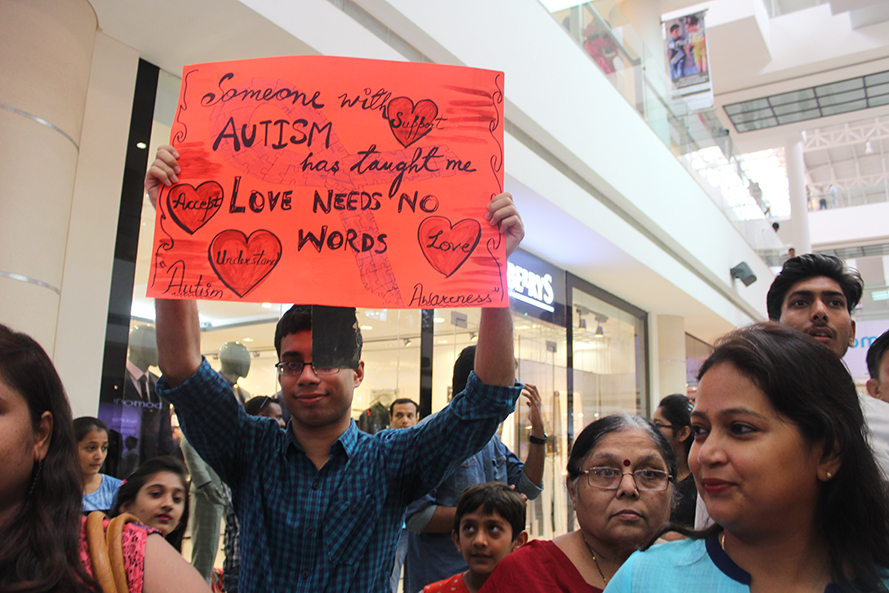 Someone with
Support
AUTISM
has taught me
Accept
LOVE NEEDS NO
WORDS
Love
Understand
"Autism
Awareness"
BERRY'S
nomod